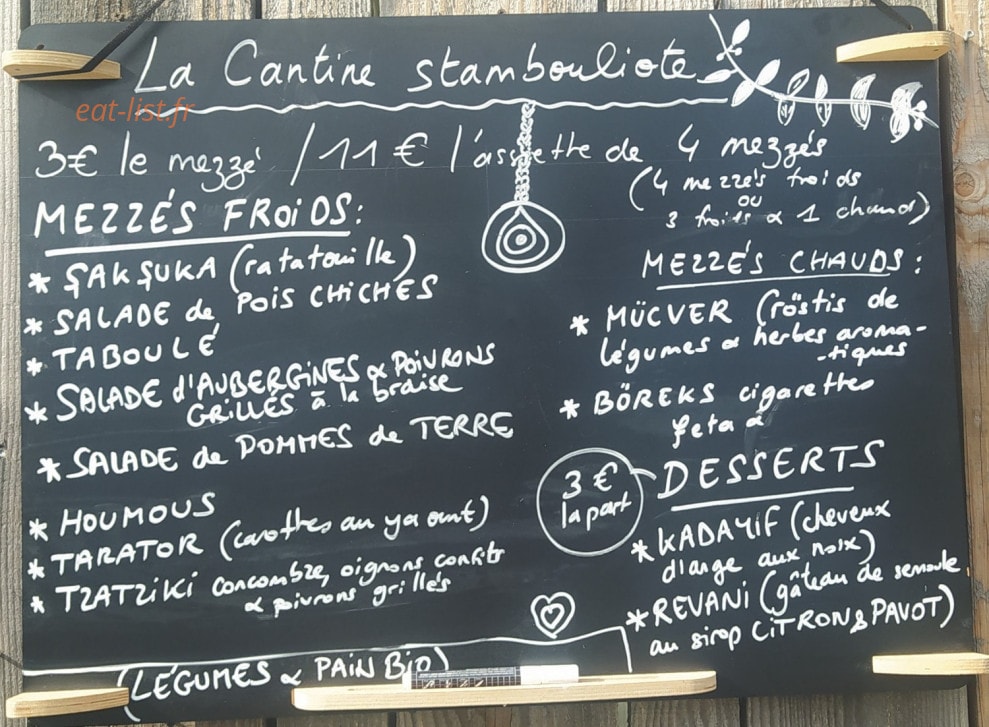 La Cantine stambouliote
eat-list.fr
3€ le mezzé / 11€ l'assiette de 4 mezzés
(4 mezzés froids
ou
3 froids & 1 chaud)
MEZZÉS FROIDS:
* ŞAKŞUKA (ratatouille)
* SALADE de POIS CHICHES
* TABOULÉ
* SALADE d'AUBERGINES & POIVRONS
GRILLÉS à la braise
* SALADE de POMMES de TERRE
* HOUMOUS
* TARATOR (carottes au yaourt)
* TZATZIKI concombre, oignons confits
& poivrons grillés
(LÉGUMES & PAIN BIO)
MEZZÉS CHAUDS:
* MÜCVER (röstis de
légumes & herbes aroma-
-tiques
* BÖREKS cigarettes
feta
3€
la part
DESSERTS
* KADAYIF (cheveux
d'ange aux noix)
* REVANI (gâteau de semoule,
au sirop CITRON & PAVOT)